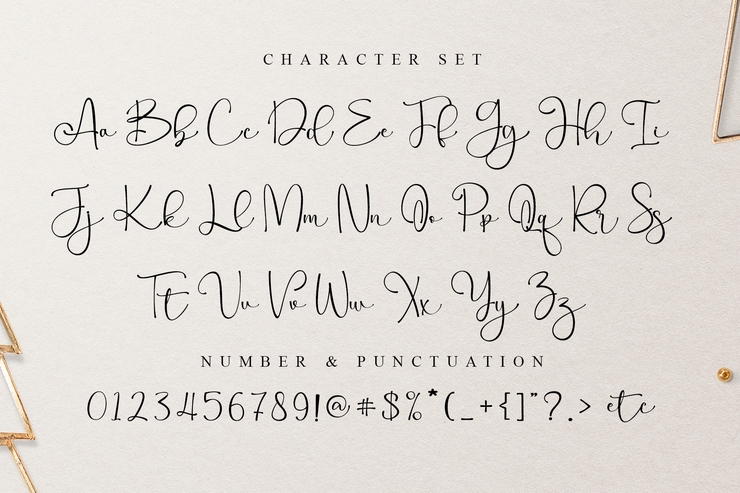 CHARACTER SET
Aa Bb Cc Dd Ee Ff Gg Hh Ii
Jj Kk Ll Mm Nn Oo Pp Qq Rr Ss
Tt Uu Vv Ww Xx Yy Zz
NUMBER & PUNCTUATION
0123456789!@#$%*(_+{]"?.> etc